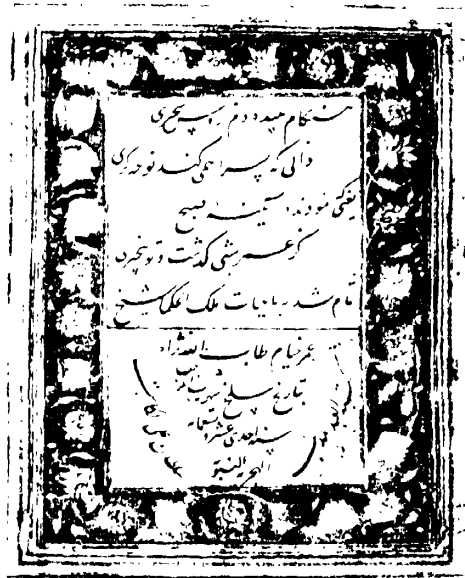 هنگام سپیده دم خروس سحری
دانی که چرا همی کند نوحه گری
یعنی که نمودند در آیینه صبح
کز عمر شبی گذشت و تو بیخبری
تمام شد رباعیات ملک الحکما شیخ
عمر خیام طاب الله ثراه
بتاریخ سلخ شهر
سنه احدی عشر و تسعمایه
الهجریة النبویة